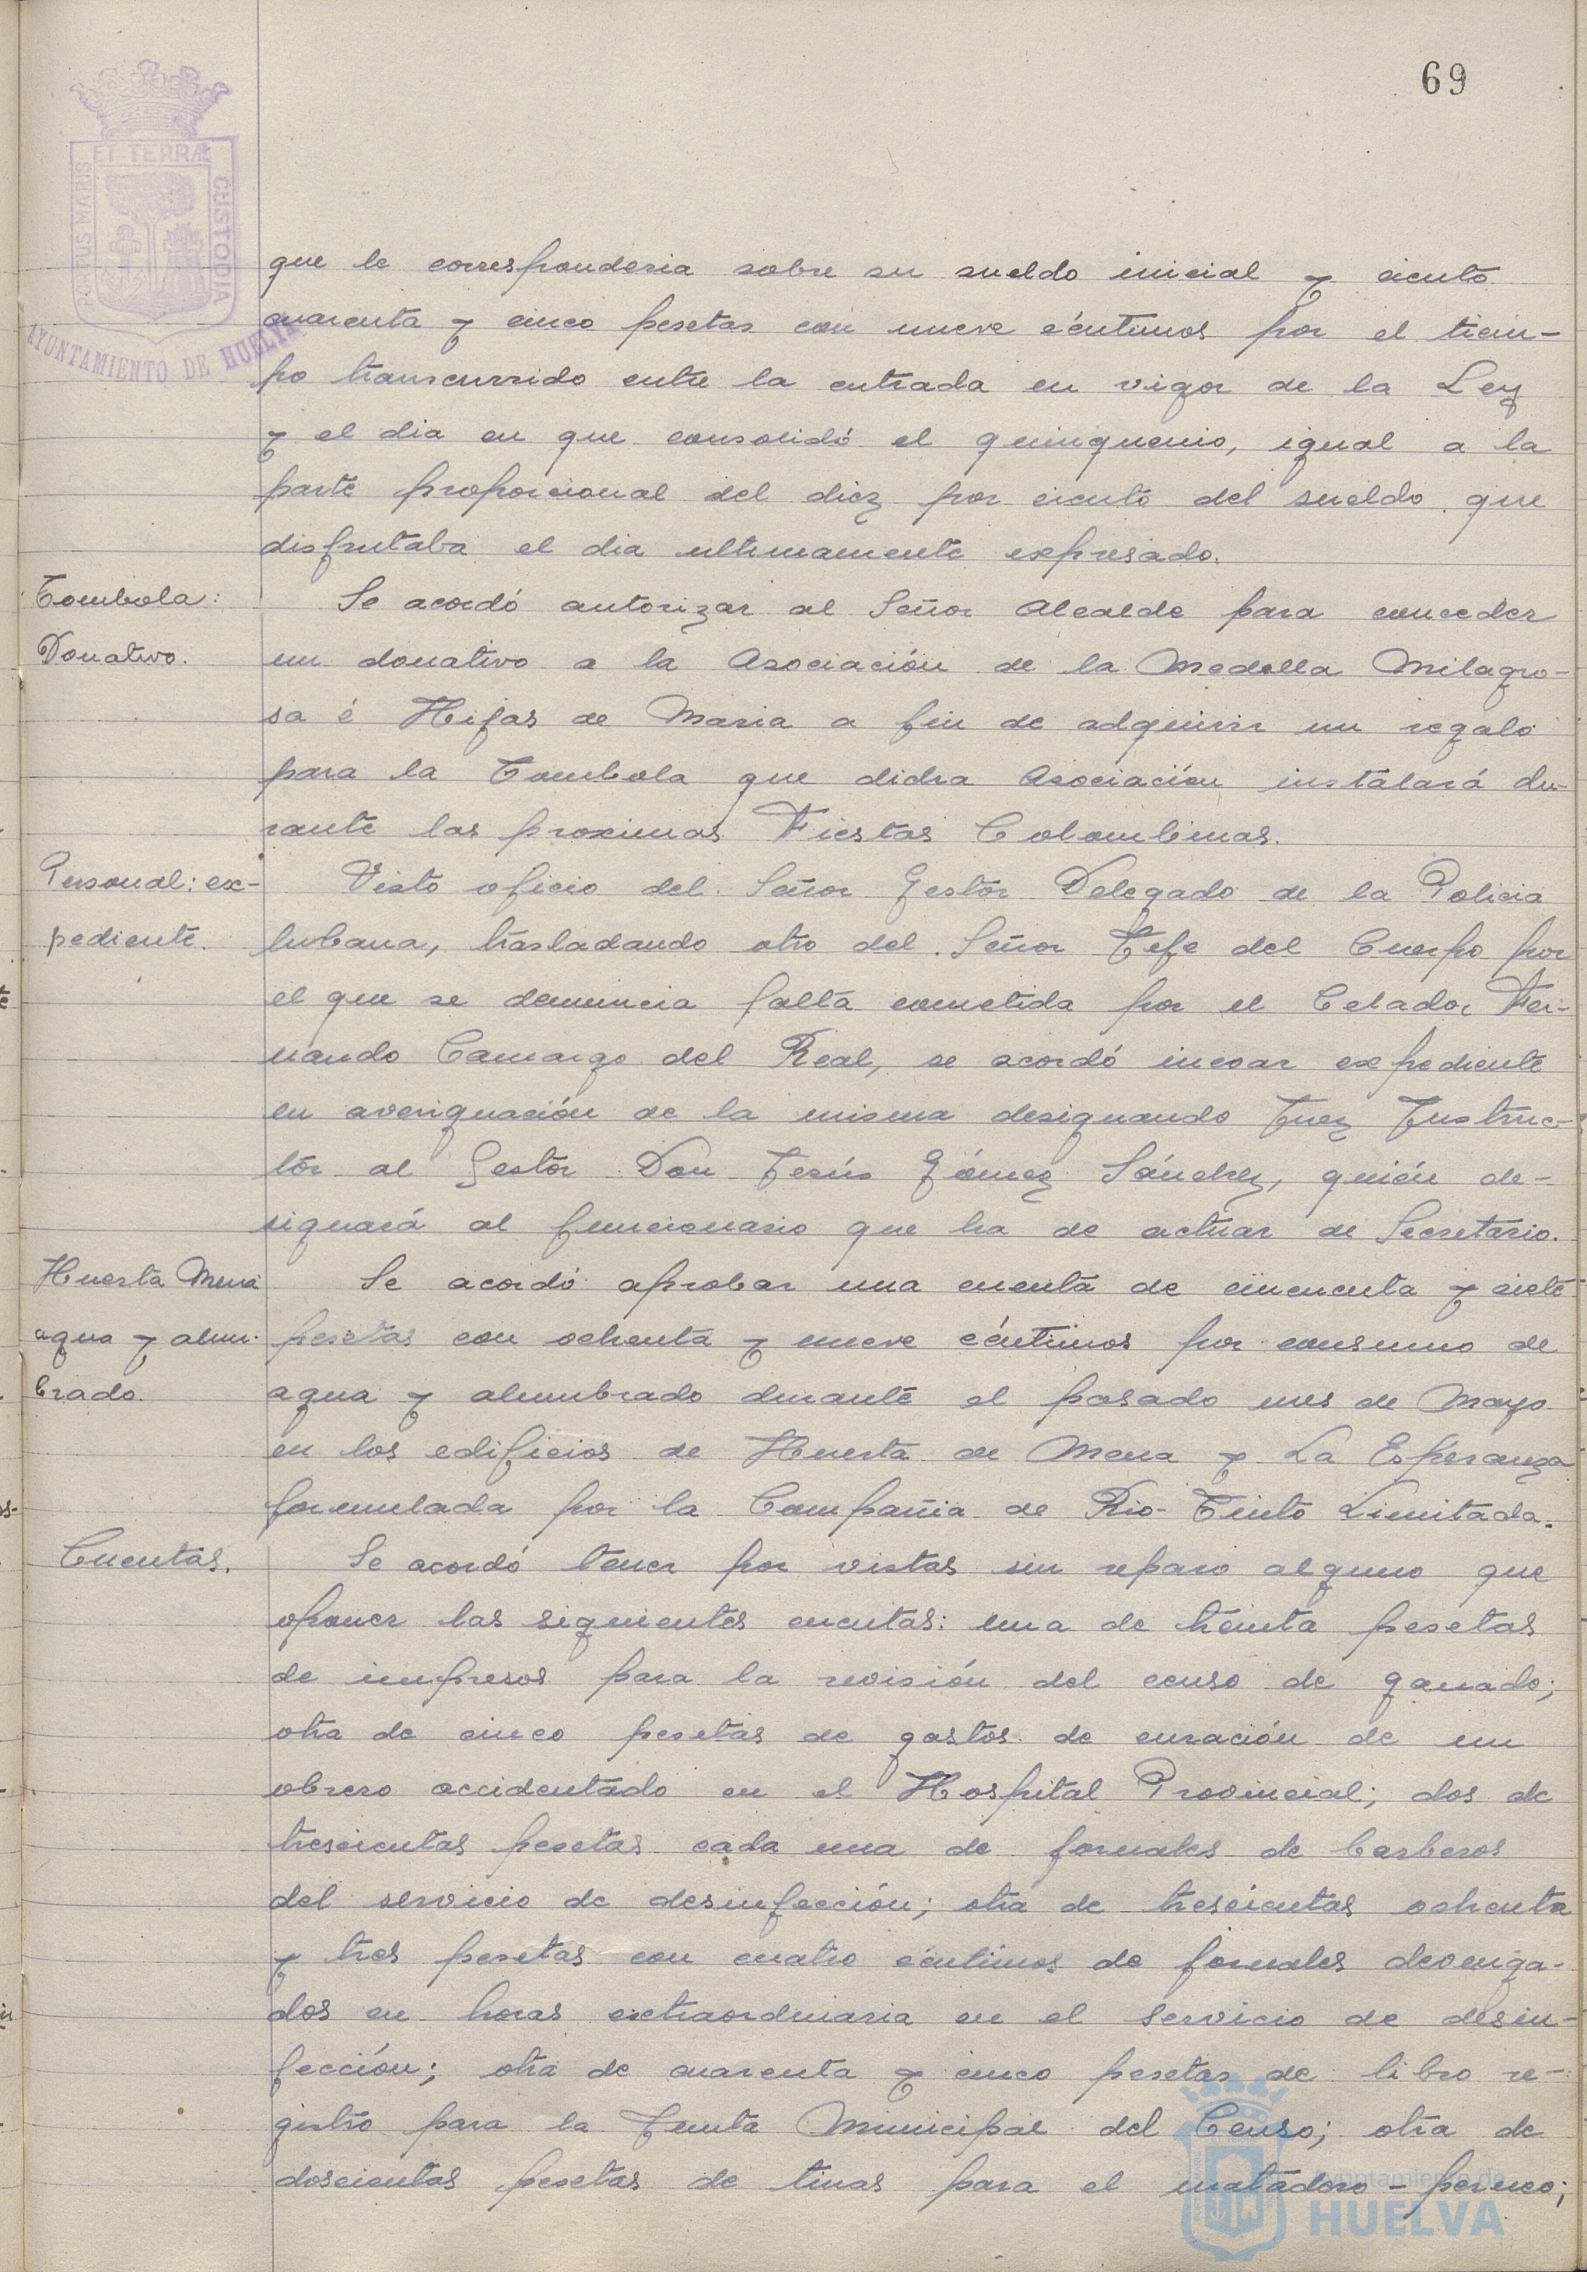 69
PORTUS MARIS ET TERRÆ CUSTODIA
AYUNTAMIENTO DE HUELVA
que le corresponderia sobre su sueldo inicial y ciento
cuarenta y cinco pesetas con nueve céntimos por el tiem-
po transcurrido entre la entrada en vigor de la Ley
y el dia en que consolidó el quinquenio, igual a la
parte proporcional del diez por ciento del sueldo que
disfrutaba el dia ultimamente expresado.
Tombola: Se acordó autorizar al Señor Alcalde para conceder
Donativo. un donativo a la Asociación de la Medalla Milagro-
sa é Hijas de Maria a fin de adquirir un regalo
para la Tombola que dicha Asociación instalará du-
rante las proximas Fiestas Colombinas.
Personal: ex- Visto oficio del Señor Gestor Delegado de la Policia
pediente. Urbana, trasladando otro del Señor Jefe del Cuerpo por
el que se denuncia falta cometida por el Celador Fer-
nando Camargo del Real, se acordó incoar expediente
en averiguación de la misma designando Juez Instruc-
tor al Gestor Don Jesús Gómez Sánchez, quién de-
signará al funcionario que ha de actuar de Secretario.
Huerta Mena Se acordó aprobar una cuenta de cincuenta y siete
agua y alum- pesetas con ochenta y nueve céntimos por consumo de
brado. agua y alumbrado durante el pasado mes de Mayo
en los edificios de Huerta de Mena y La Esperanza
formulada por la Compañia de Rio-Tinto Limitada.
Cuentas. Se acordó tener por vistas sin reparo alguno que
oponer las siguientes cuentas: una de treinta pesetas
de impresos para la revisión del censo de ganado;
otra de cinco pesetas de gastos de curación de un
obrero accidentado en el Hospital Provincial; dos de
trescientas pesetas cada una de jornales de barberos
del servicio de desinfección; otra de trescientas ochenta
y tres pesetas con cuatro céntimos de jornales devenga-
dos en horas extraordinaria en el servicio de desin-
fección; otra de cuarenta y cinco pesetas de libro re-
gistro para la Junta Municipal del Censo; otra de
doscientas pesetas de tinas para el matadero-
Ayuntamiento de
HUELVA